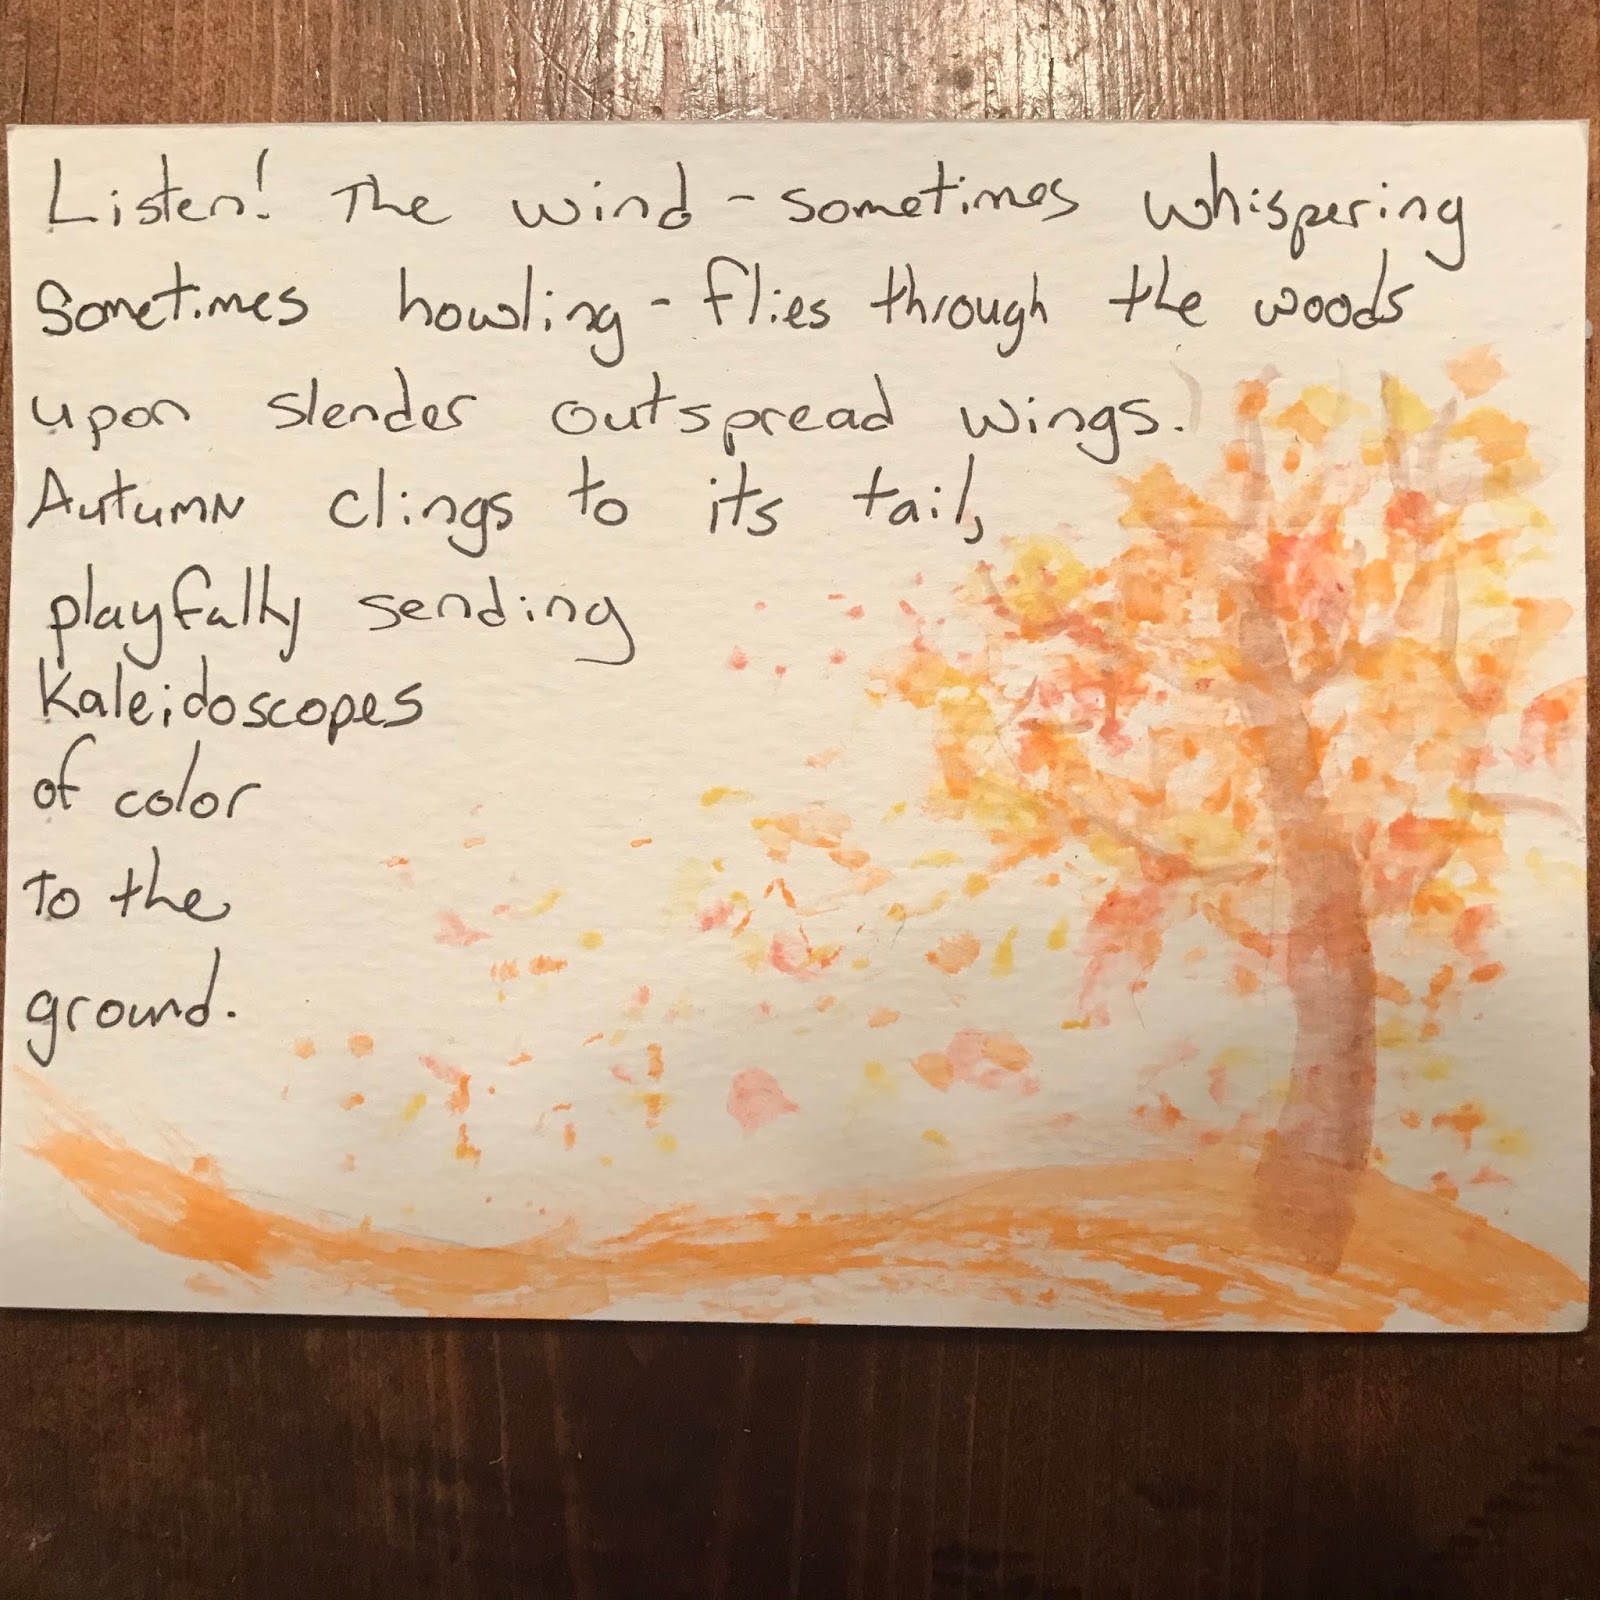 Listen! The wind - sometimes whispering
Sometimes howling - flies through the woods
upon slender outspread wings.
Autumn clings to its tail,
playfully sending
Kaleidoscopes
of color
To the
ground.